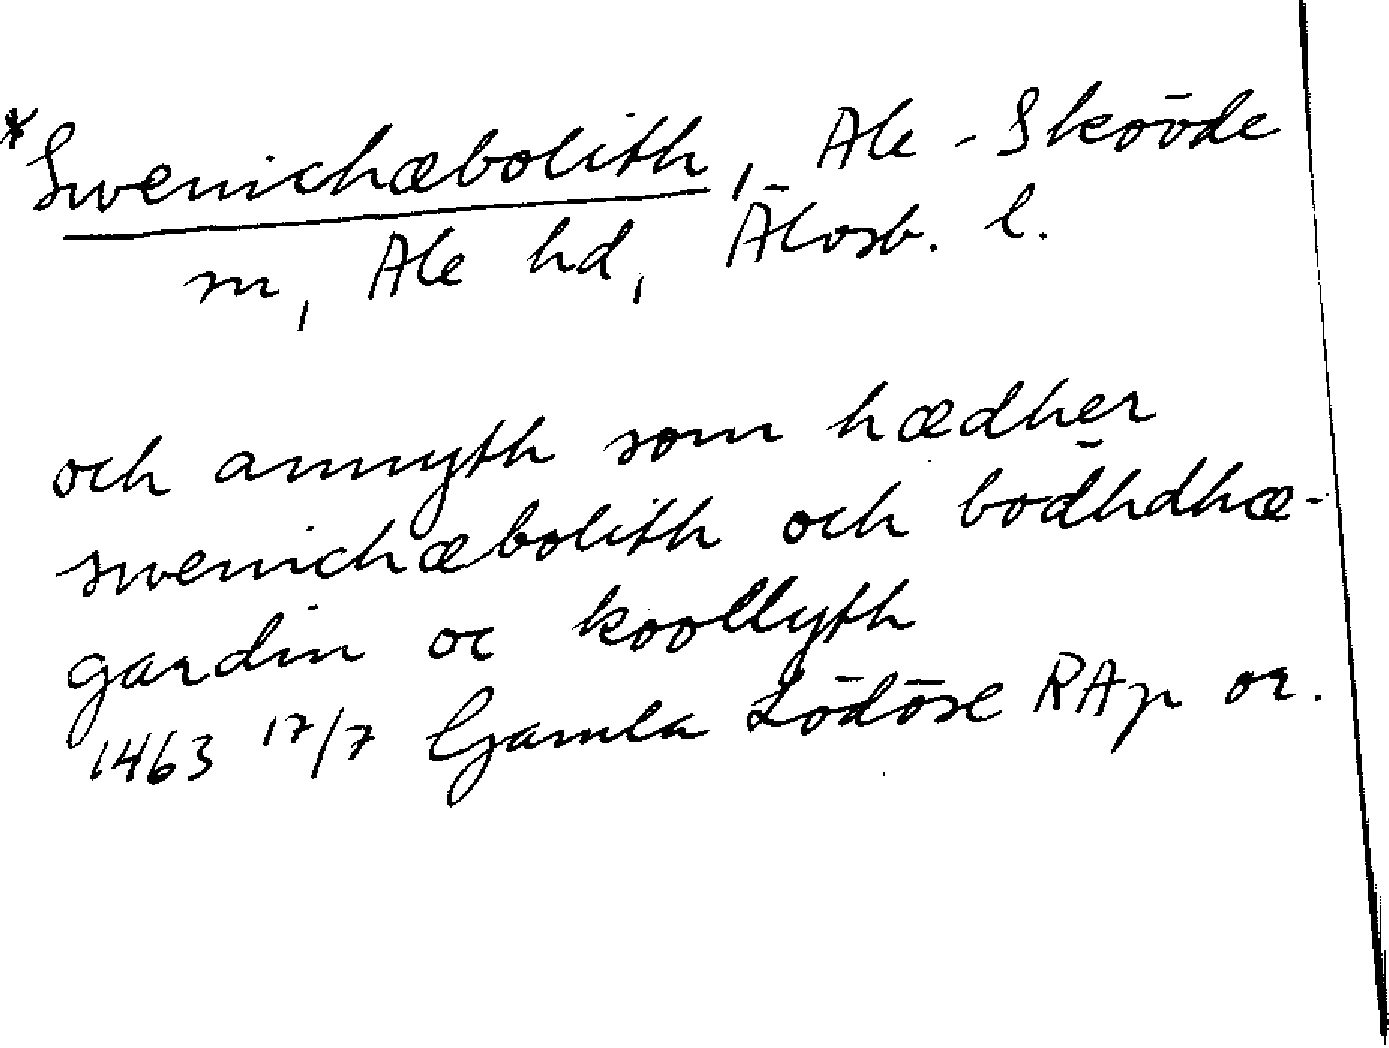 *Swenichæbolith, Ale-Skövde
sn, Ale hd, Älvsb. l.
och annyth som hædher
swenichæbolith och bödhdhæ-
gardin oc koollyth
1463 17/7 Gamla Lödöse RAp or.